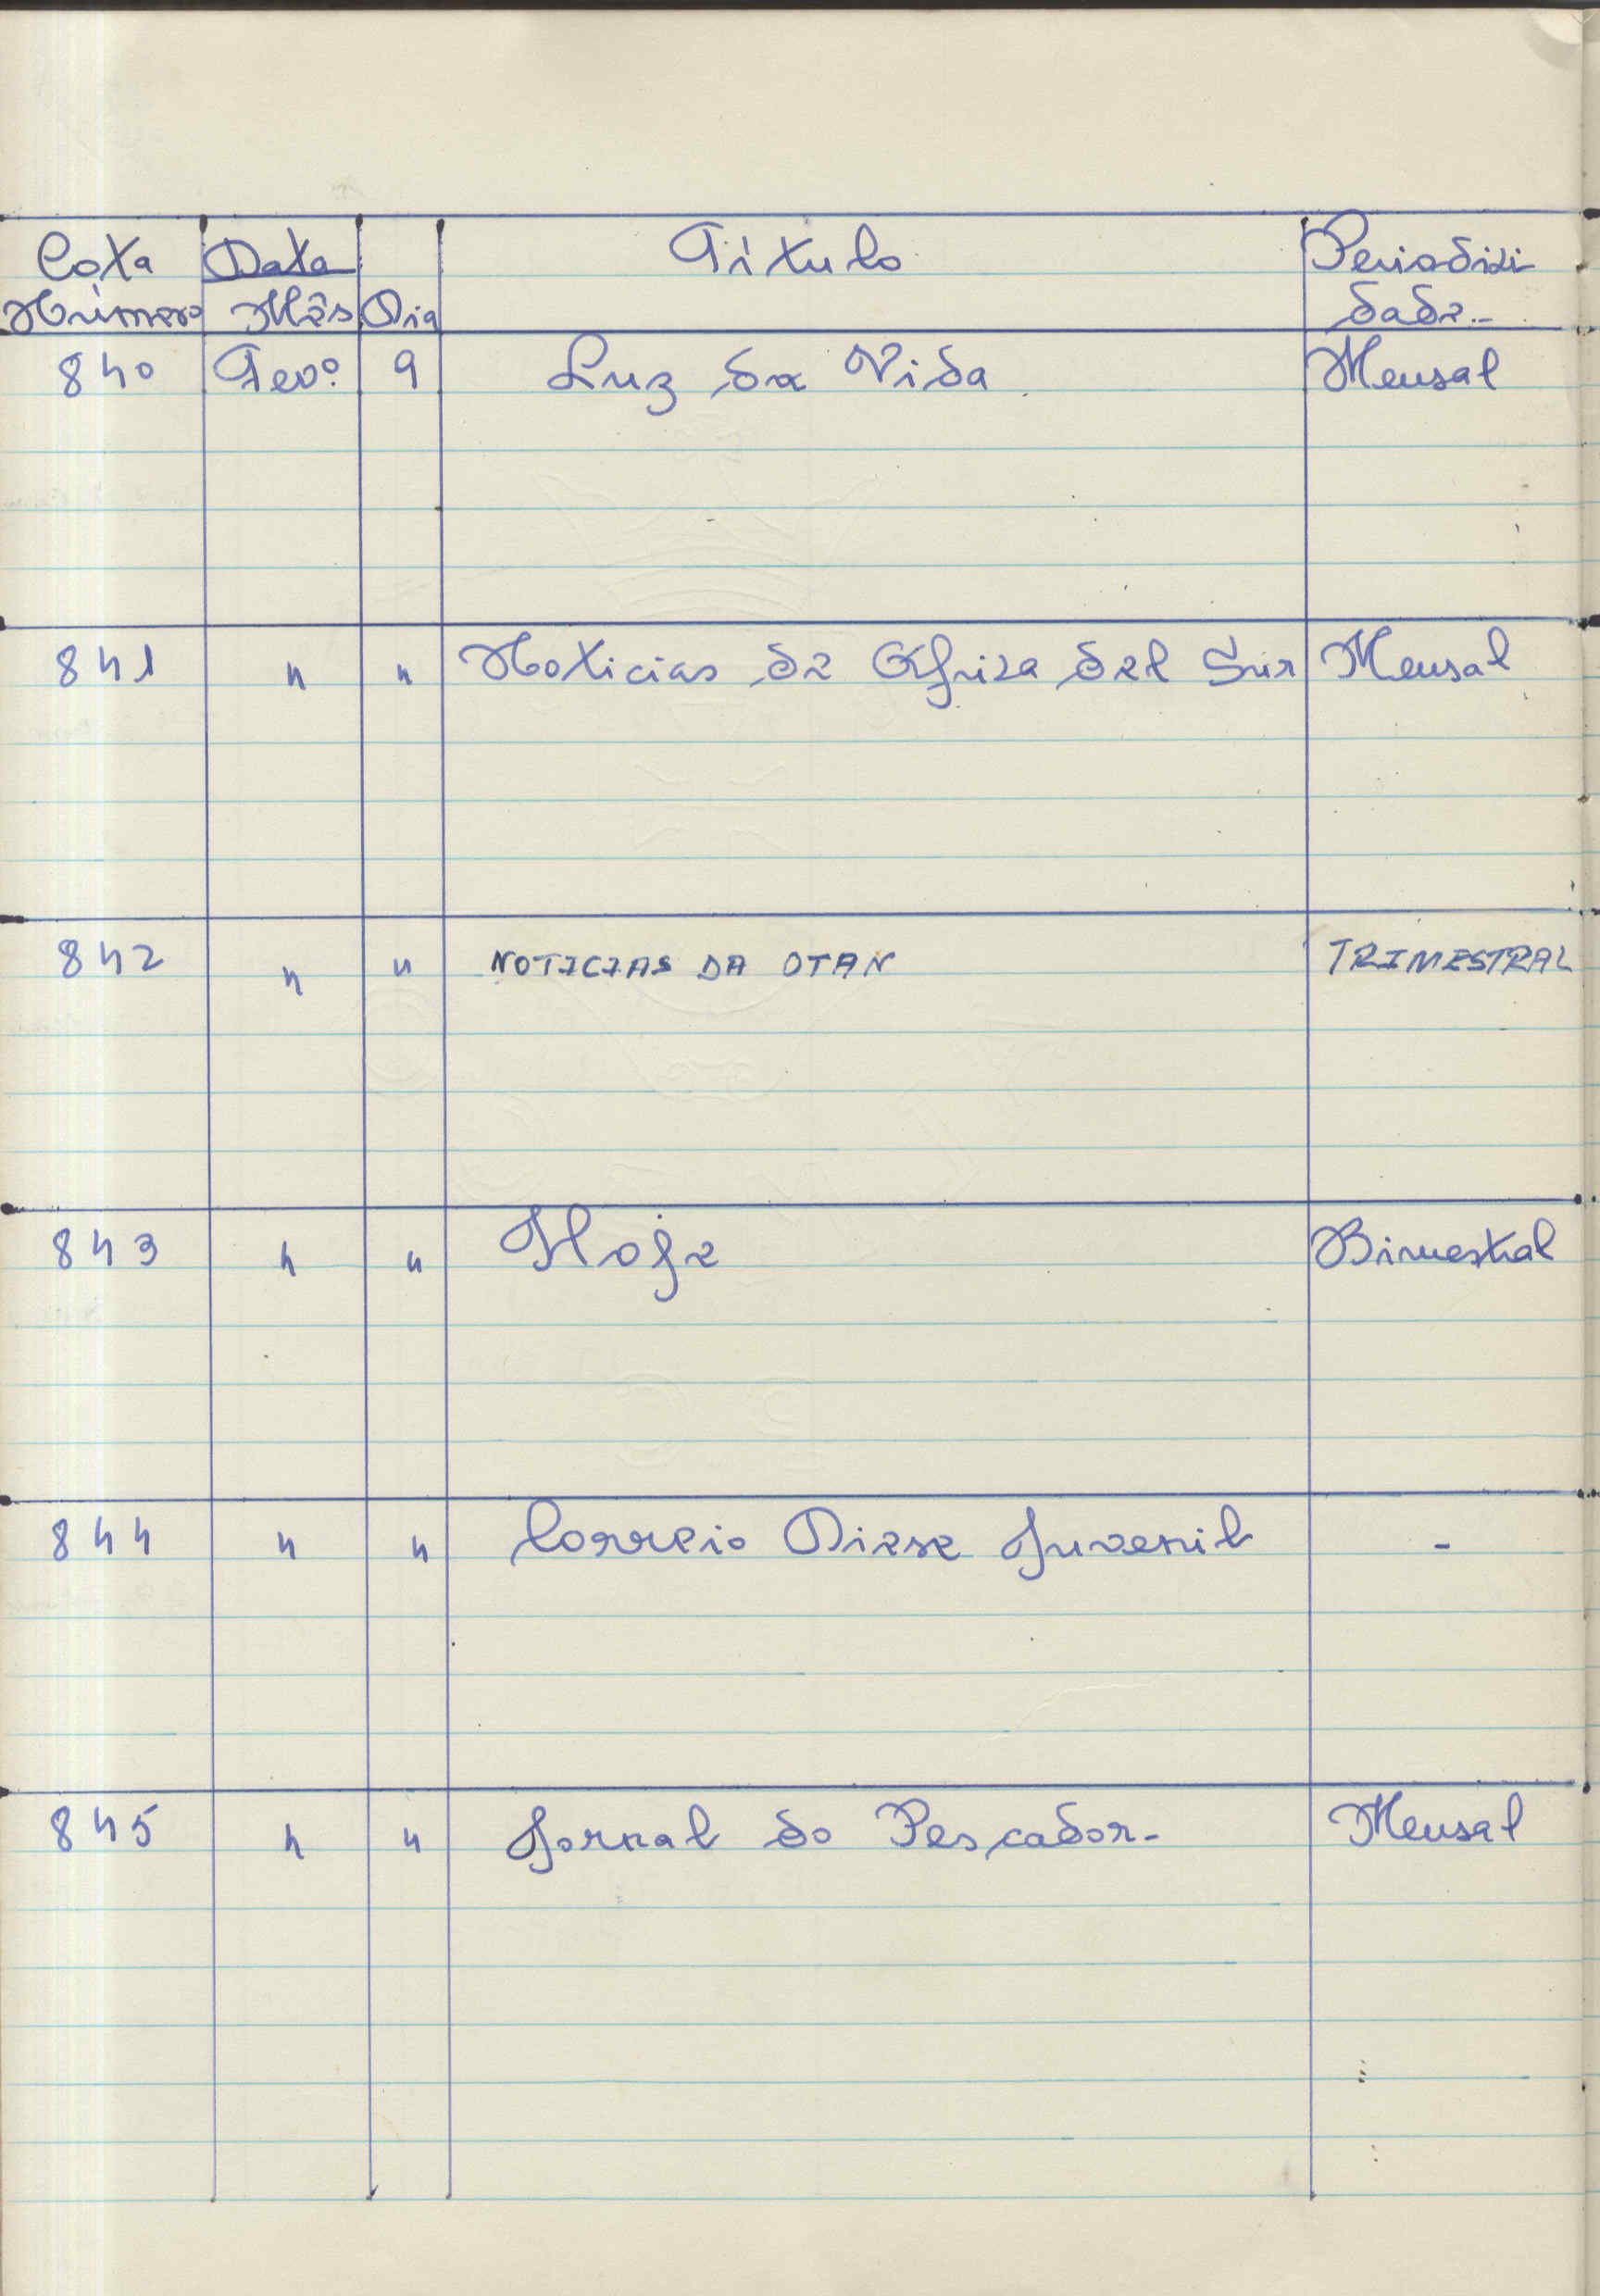 Cota Data Título Periodici
Número Mês Dia dade -
840 Fevº 9 Luz da Vida Mensal
841 " " Noticias de Africa del Sur Mensal
842 " " NOTICIAS DA OTAN TRIMESTRAL
843 " " Hoje Bimestral
844 " " Correio Diese Juvenil -
845 " " Jornal do Pescador - Mensal